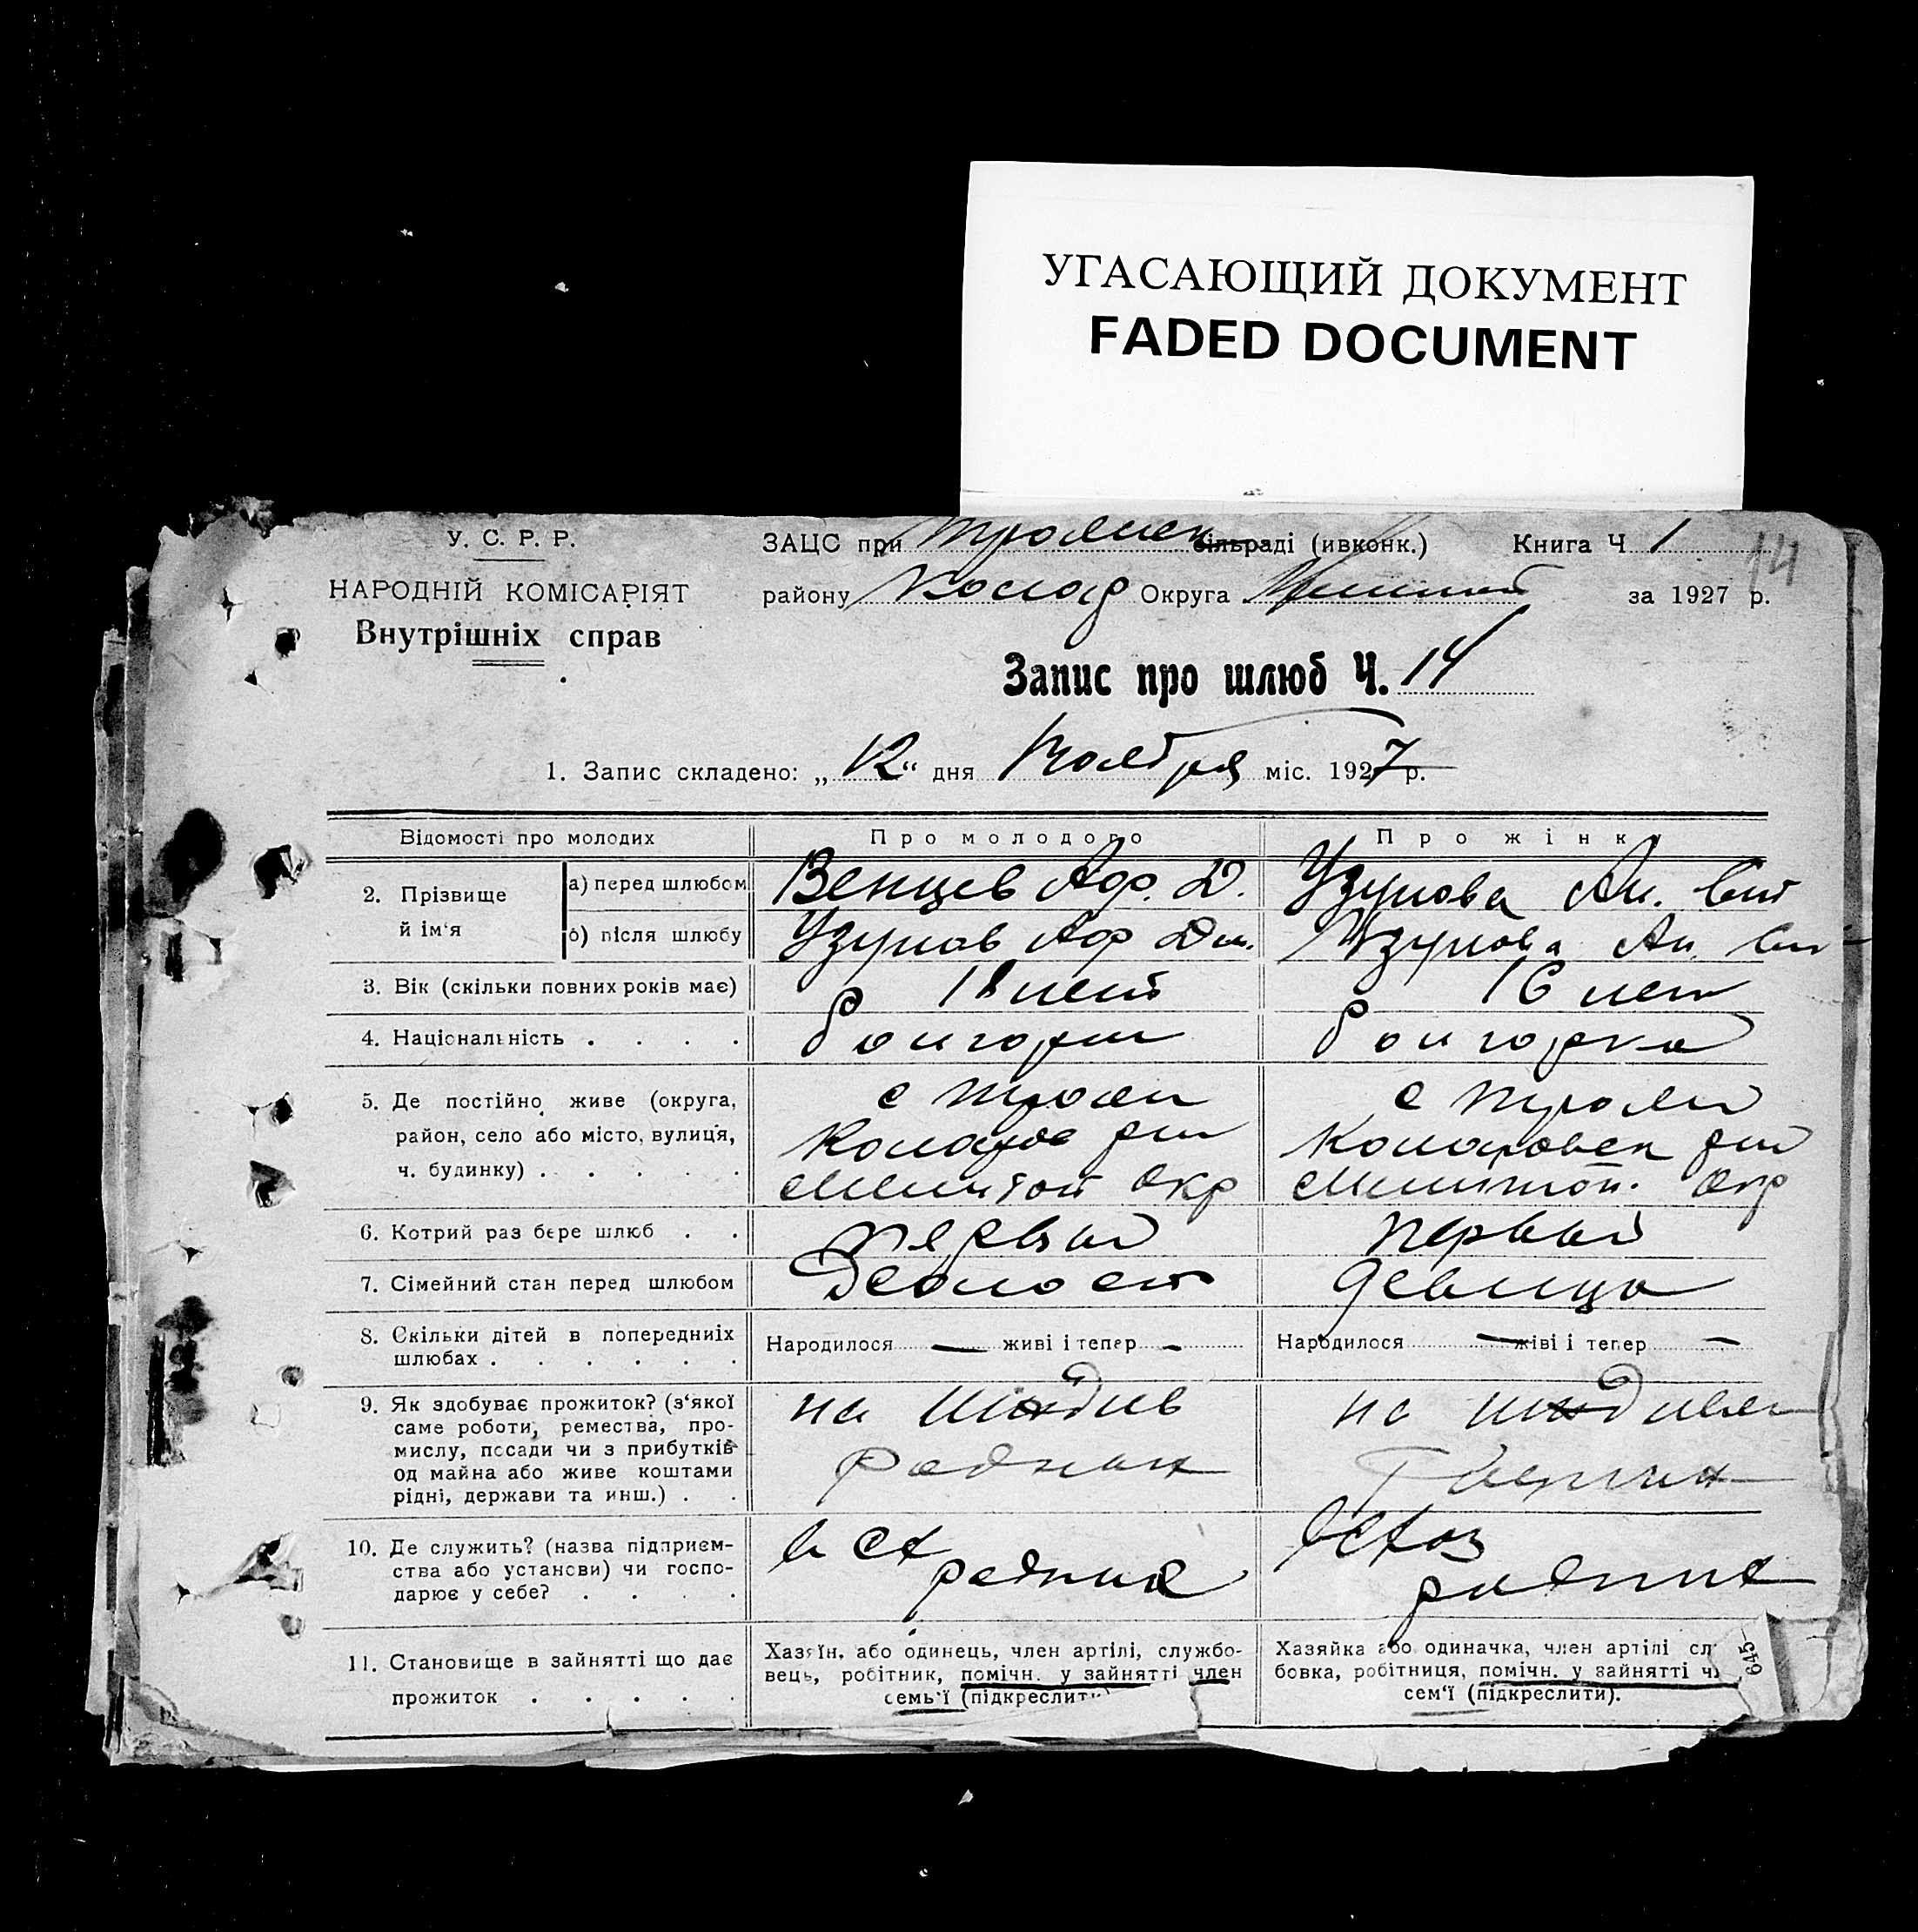 УГАСАЮЩИЙ ДОКУМЕНТ
FADED DOCUMENT
У. С. Р. Р.
НАРОДНІЙ КОМІСАРІЯТ
Внутрішніх справ
ЗАЦС при сільраді (ивконк.) Книга Ч 1
14
району Округа за 1927 р.
Запис про шлюб Ч. 14
1. Запис складено: „12“ дня Ноября міс. 1927 р.
Відомості про молодих
Про молодого
Про жінку
2. Прізвище й ім'я
а) перед шлюбом
Венцев Аф. Д.
Узунова Ан.
б) після шлюбу
Узунов Аф Дм.
Узунова Ан.
3. Вік (скільки повних років має)
18 лет
16 лет
4. Національність . . . .
болгарин
болгарка
5. Де постійно живе (округа,
район, село або місто, вулиця,
ч. будинку) . . . . .
с Троян
Коларов
Мелитоп Окр
с Троян
Коларовск
Мелитоп. Окр
6. Котрий раз бере шлюб . .
первый
первый
7. Сімейний стан перед шлюбом
Холост
девица
8. Скільки дітей в попередніх
шлюбах . . . . . .
Народилося — живі і тепер —
Народилося — живі і тепер —
9. Як здобуває прожиток? (з'якої
саме роботи, ремества, про-
мислу, посади чи з прибутків
од майна або живе коштами
рідні, держави та инш.) . .
на
на
10. Де служить? (назва підприєм-
ства або установи) чи госпо-
дарює у себе? . . . .
11. Становище в зайнятті що дає
прожиток . . . . .
Хазяїн, або одинець, член артілі, службо-
вець, робітник, помічн. у зайнятті член
семь'ї (підкреслити)
Хазяйка або одиначка, член артілі сл
бовка, робітниця, помічн. у зайнятті ч
сем'ї (підкреслити).
645